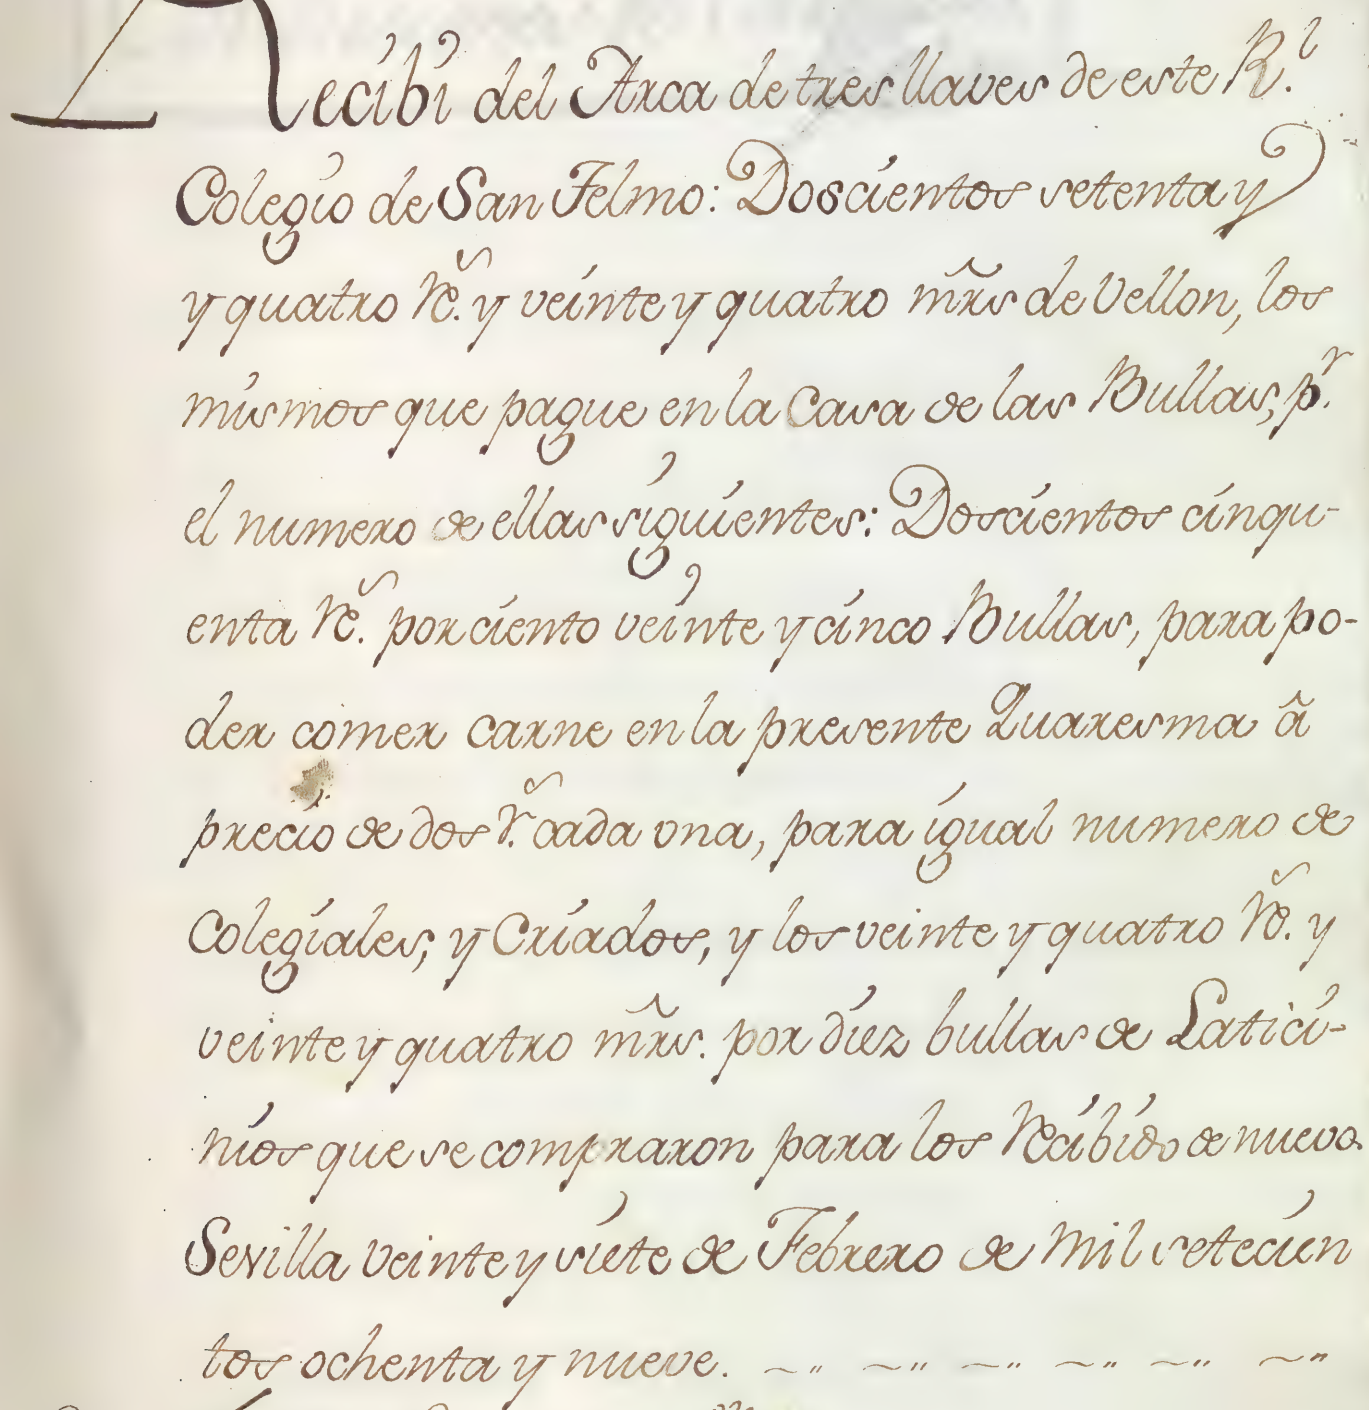 Recibi del Arca de tres llaves de este R.l
Colegio de San Telmo: Doscientos setenta y
y quatro rs. y veinte y quatro mrs de Vellon, los
mismos que pague en la Casa de las Bullas, p.r
el numero de ellas siguientes: Doscientos cinqu-
enta rs. por ciento veinte y cinco Bullas, para po-
der comer carne en la presente Quaresma â
precio de dos rs. cada una, para igual numero de
Colegiales, y Criados, y los veinte y quatro rs. y
veinte y quatro mrs. por diez bullas de Latici-
nios que se compraron para los Recibidos de nuevo.
Sevilla veinte y siete de Febrero de mil setecien
tos ochenta y nueve.